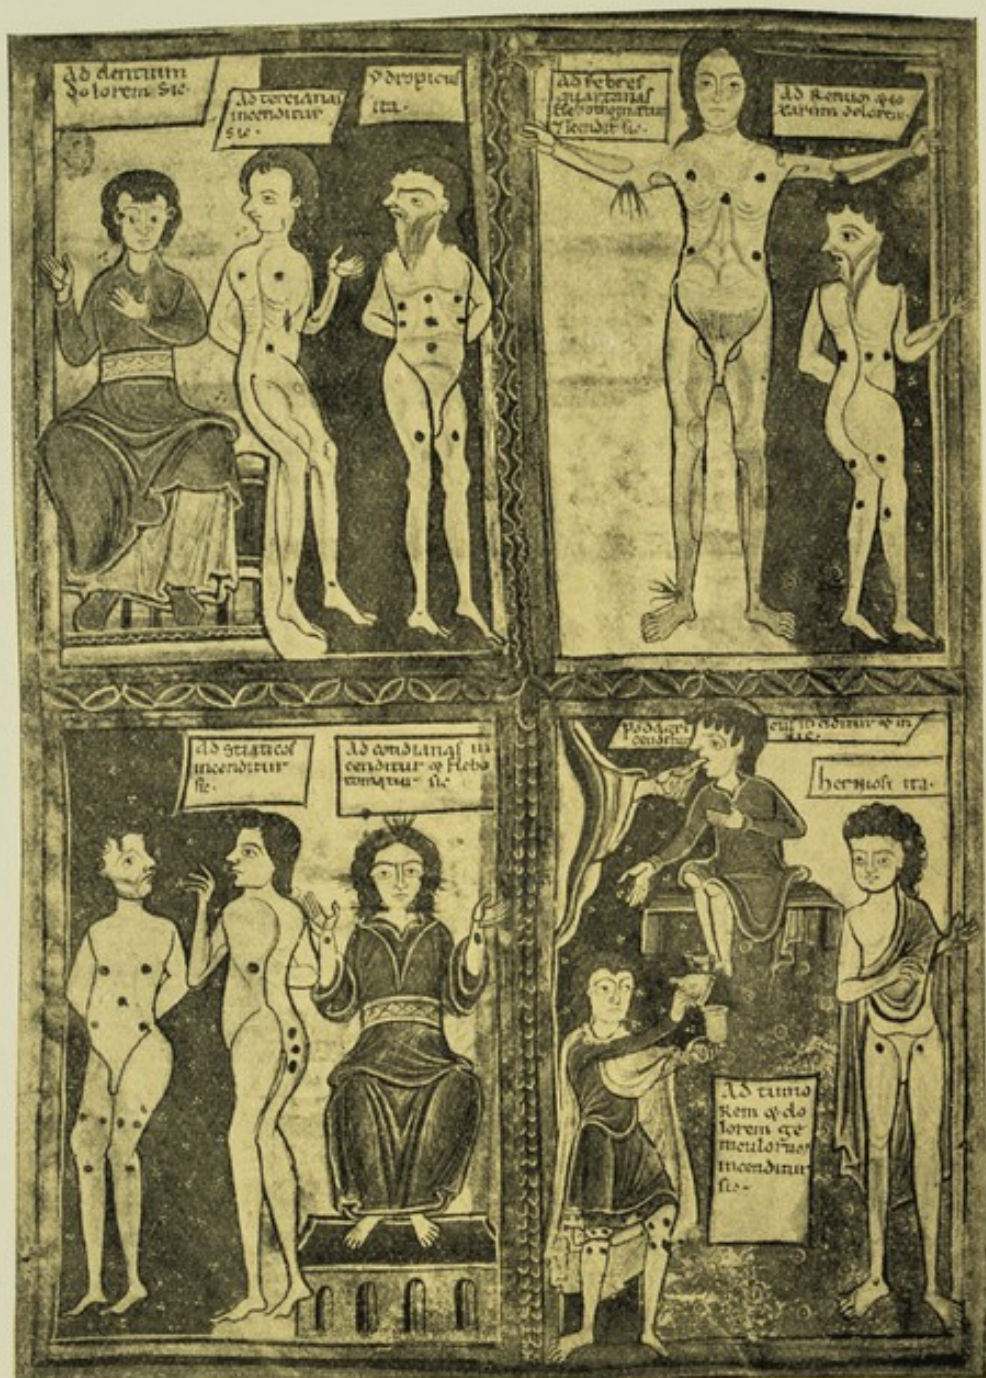 Ad dentium
dolorem. Sic.
Ad tercianas
incenditur
sic.
Ydropicus
ita.
Ad febres
quartanas
flebotomatur
⁊ incendit sic.
Ad Renum
dolorem.
Ad sciaticos
incenditur
sic.
Ad cotidianas in
cenditur & flebo
tomatur sic
Podagri
in
sic.
hernioli ita.
Ad tumo
Rem & do
lorem ge
niculorum
incenditur
sic.